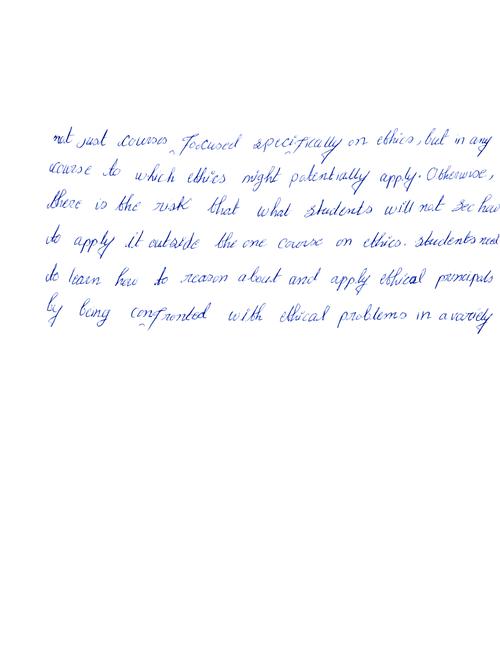 not just courses focused specifically on ethics, but in any
course to which ethics might potentially apply. Otherwise,
there is the risk that what students will not see how
to apply it outside the one course on ethics. students need
to learn how to reason about and apply ethical principals
by being confronted with ethical problems in a variety